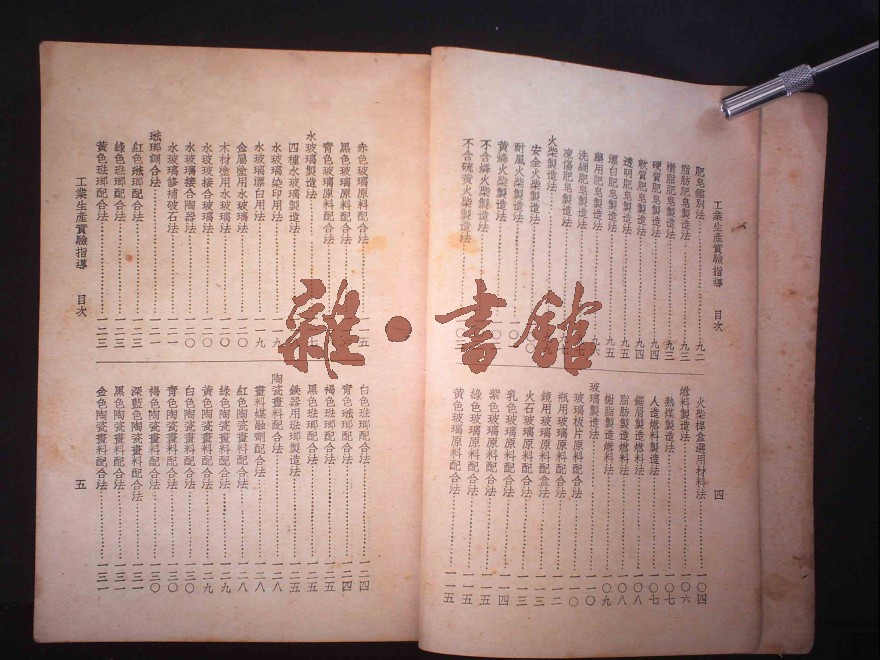 工業生產實驗指導　目次
四
肥皂鑑別法…九二
脂肪肥皂製造法…九三
樹脂肥皂製造法…九三
硬質肥皂製造法…九四
軟質肥皂製造法…九四
透明肥皂製造法…九五
漂白肥皂製造法…九五
藥用肥皂製造法…九六
洗綢肥皂製造法
凍傷肥皂製造法
火柴製造法
安全火柴製造法
耐風火柴製造法
黃燐火柴製造法
不含燐火柴製造法
不含硫黃火柴製造法
火柴桿盒選用材料法…一〇四
燃料製造法…一〇六
熟煤製造法…一〇七
人造燃料製造法…一〇七
鋸屑製造燃料法…一〇八
脂肪製造燃料法…一〇八
樹脂製造燃料法…一〇九
玻璃製造法…一一〇
玻璃板片原料配合法…一一〇
瓶用玻璃原料配合法…一一二
鏡用玻璃原料配盒法…一一三
火石玻璃原料配合法…一一三
乳色玻璃原料配合法…一一四
紫色玻璃原料配合法…一一五
綠色玻璃原料配合法…一一五
黃色玻璃原料配合法…一一五
赤色玻璃原料配合法…一一五
黑色玻璃原料配合法
青色玻璃原料配合法
水玻璃製造法
四種水玻璃製造法
水玻璃染印用法
水玻璃漂白用法…一一九
金屬塗用水玻璃法…一二〇
木材塗用水玻璃法…一二〇
水玻玻接合玻璃法…一二〇
水玻璃接合陶器法…一二〇
水玻璃修補破石法…一二一
琺瑯調合法…一二一
紅色琺瑯配合法…一二三
綠色琺瑯配合法…一二三
黃色琺瑯配合法…一二三
白色琺瑯配合法…一二四
青色琺瑯配合法…一二四
褐色琺瑯配合法…一二五
黑色琺瑯配合法…一二五
鐵器用琺瑯製造法…一二五
陶瓷畫料配合法…一二八
畫料媒融劑配合法…一二八
紅色陶瓷畫料配合法…一二八
綠色陶瓷畫料配合法…一二九
黃色陶瓷畫料配合法…一二九
白色陶瓷畫料配合法…一三〇
青色陶瓷畫料配合法…一三〇
褐色陶瓷畫料配合法…一三〇
深藍色陶瓷畫料配合法…一三一
黑色陶瓷畫料配合法…一三一
金色陶瓷畫料配合法…一三一
工業生產實驗指導　目次
五
雜·書館